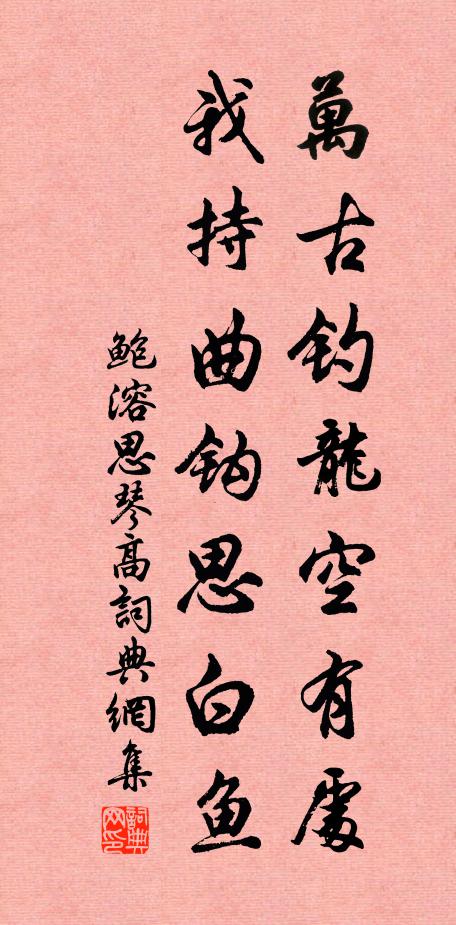 萬古釣龍空有處
我持曲鈎思白魚
鮑溶思琴高詞典網集
詞典网印